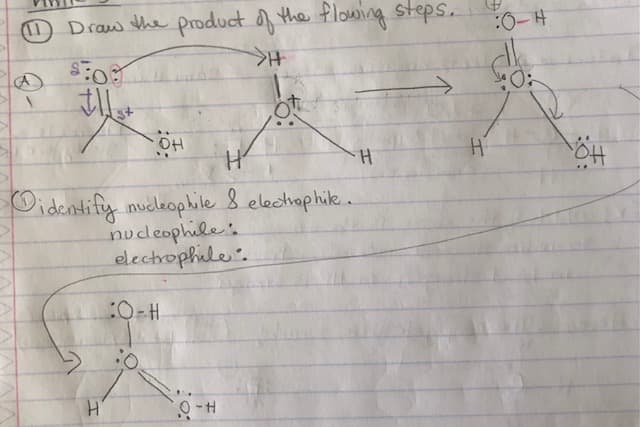 11) Draw the product of the flowing steps.
:O-H
A
δ-
:O:
δ+
ÖH
H
O+
H
H
:O:
H
ÖH
① identify nucleophile & electrophile.
nucleophile:
electrophile:
:O-H
:O
H
O-H